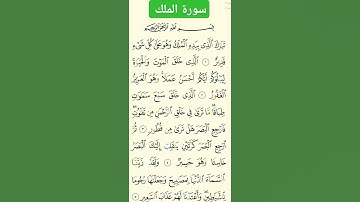 سورة الملك
بِسْمِ اللَّهِ الرَّحْمَٰنِ الرَّحِيمِ
تَبَٰرَكَ ٱلَّذِى بِيَدِهِ ٱلْمُلْكُ وَهُوَ عَلَىٰ كُلِّ شَىْءٍ
قَدِيرٌ ١ ٱلَّذِى خَلَقَ ٱلْمَوْتَ وَٱلْحَيَوٰةَ
لِيَبْلُوَكُمْ أَيُّكُمْ أَحْسَنُ عَمَلًا وَهُوَ ٱلْعَزِيزُ
ٱلْغَفُورُ ٢ ٱلَّذِى خَلَقَ سَبْعَ سَمَٰوَٰتٍ
طِبَاقًا مَّا تَرَىٰ فِى خَلْقِ ٱلرَّحْمَٰنِ مِن تَفَٰوُتٍ
فَٱرْجِعِ ٱلْبَصَرَ هَلْ تَرَىٰ مِن فُطُورٍ ٣
ثُمَّ ٱرْجِعِ ٱلْبَصَرَ كَرَّتَيْنِ يَنقَلِبْ إِلَيْكَ ٱلْبَصَرُ
خَاسِئًا وَهُوَ حَسِيرٌ ٤ وَلَقَدْ زَيَّنَّا
ٱلسَّمَآءَ ٱلدُّنْيَا بِمَصَٰبِيحَ وَجَعَلْنَٰهَا رُجُومًا
لِّلشَّيَٰطِينِ وَأَعْتَدْنَا لَهُمْ عَذَابَ ٱلسَّعِيرِ ٥